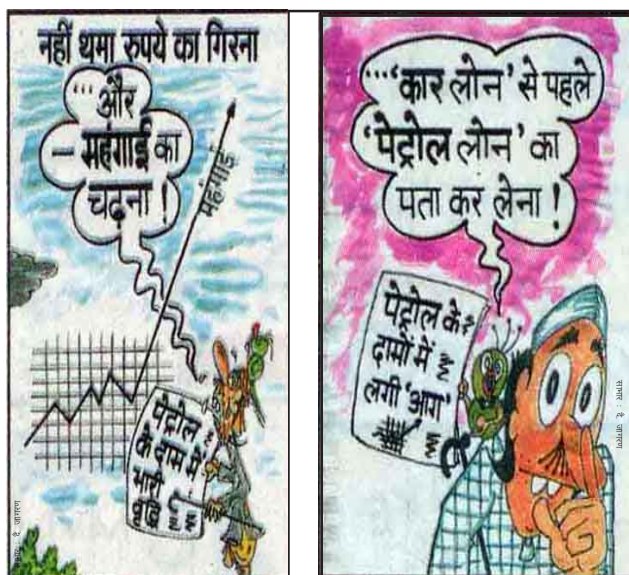 नहीं थमा रुपये का गिरना
...और
– महंगाई का
चढ़ना !
महंगाई
पेट्रोल
के दाम में
भारी
वृद्धि
...'कार लोन' से पहले
'पेट्रोल लोन' का
पता कर लेना !
पेट्रोल के
दामों में
लगी 'आग'